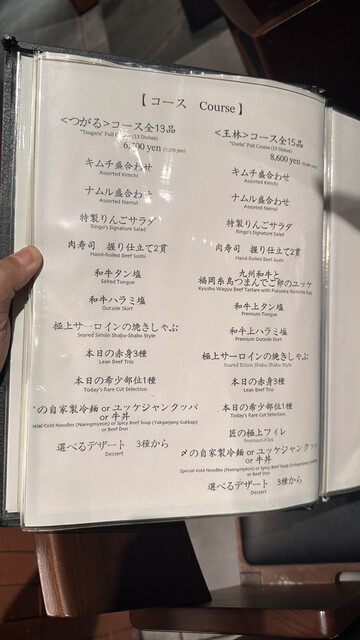 【 コース Course 】
<つがる>コース全13品
"Tsugaru" Full Course (13 Dishes)
6,700 yen
キムチ盛合わせ
Assorted Kimchi
ナムル盛合わせ
Assorted Namul
特製りんごサラダ
Ringo's Signature Salad
肉寿司 握り仕立て2貫
Hand-Rolled Beef Sushi
和牛タン塩
Salted Tongue
和牛ハラミ塩
Outside Skirt
極上サーロインの焼きしゃぶ
Seared Sirloin Shabu-Shabu Style
本日の赤身3種
Lean Beef Trio
本日の希少部位1種
Today's Rare Cut Selection
の自家製冷麺 or ユッケジャンクッパ
or 牛丼
Cold Noodles (Naengmyeon) or Spicy Beef Soup (Yukgaejang Gukbap)
or Beef Don
選べるデザート 3種から
Dessert
<王林>コース全15品
Full Course (15 Dishes)
8,600 yen
キムチ盛合わせ
Assorted Kimchi
ナムル盛合わせ
Assorted Namul
特製りんごサラダ
Ringo's Signature Salad
肉寿司 握り仕立て2貫
Hand-Rolled Beef Sushi
九州和牛と
福岡糸島つまんでご卵のユッケ
Kyushu Wagyu Beef Tartare with Fukuoka Itoshima Egg
和牛上タン塩
Premium Tongue
和牛上ハラミ塩
Premium Outside Skirt
極上サーロインの焼きしゃぶ
Seared Sirloin Shabu-Shabu Style
本日の赤身3種
Lean Beef Trio
本日の希少部位1種
Today's Rare Cut Selection
匠の極上フィレ
Premium Filet
〆の自家製冷麺 or ユッケジャンクッパ
or 牛丼
Special Cold Noodles (Naengmyeon) or Spicy Beef Soup (Yukgaejang Gukbap)
or Beef Don
選べるデザート 3種から
Dessert